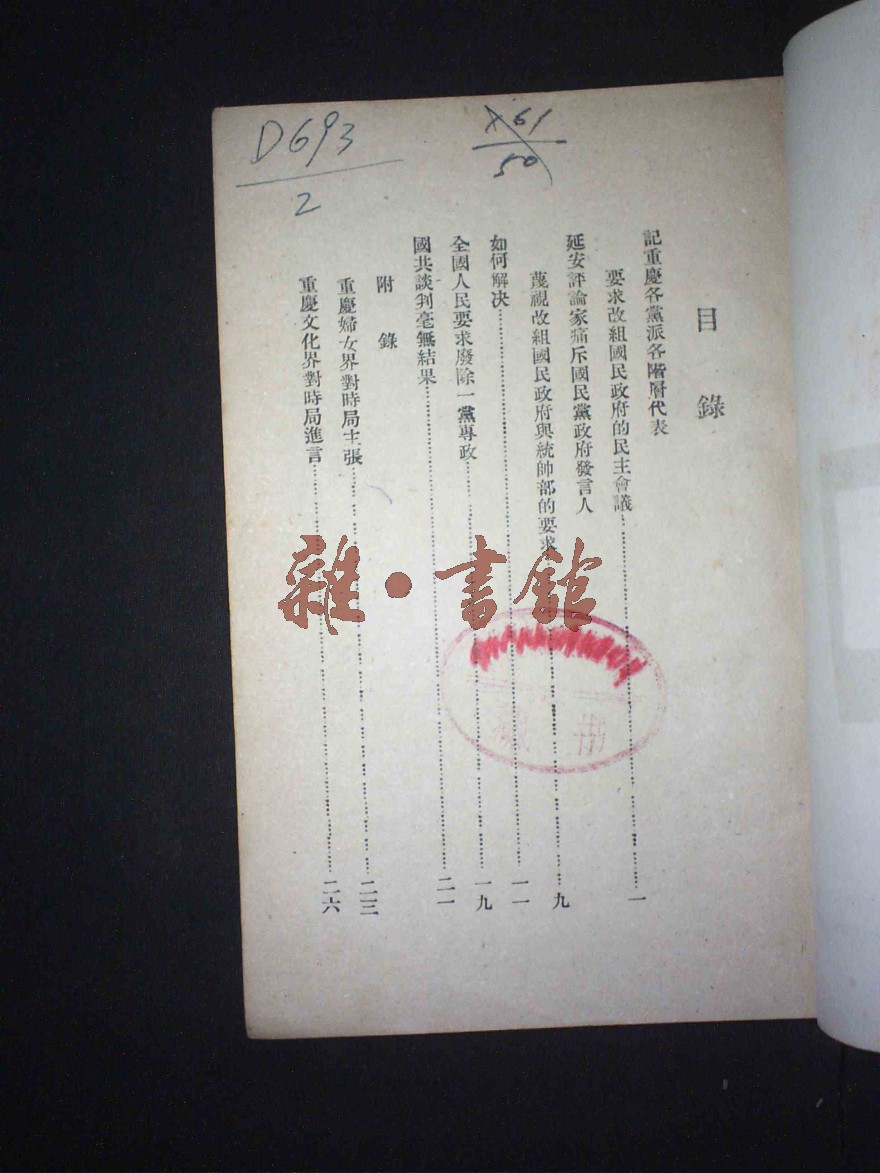 D693
2
X61
50
目錄
記重慶各黨派各階層代表
要求改組國民政府的民主會議……一
延安評論家痛斥國民黨政府發言人
蔑視改組國民政府與統帥部的要求……九
如何解決……一一
全國人民要求廢除一黨專政……一九
國共談判毫無結果……二一
附錄
重慶婦女界對時局主張……二三
重慶文化界對時局進言……二六
雜·書館